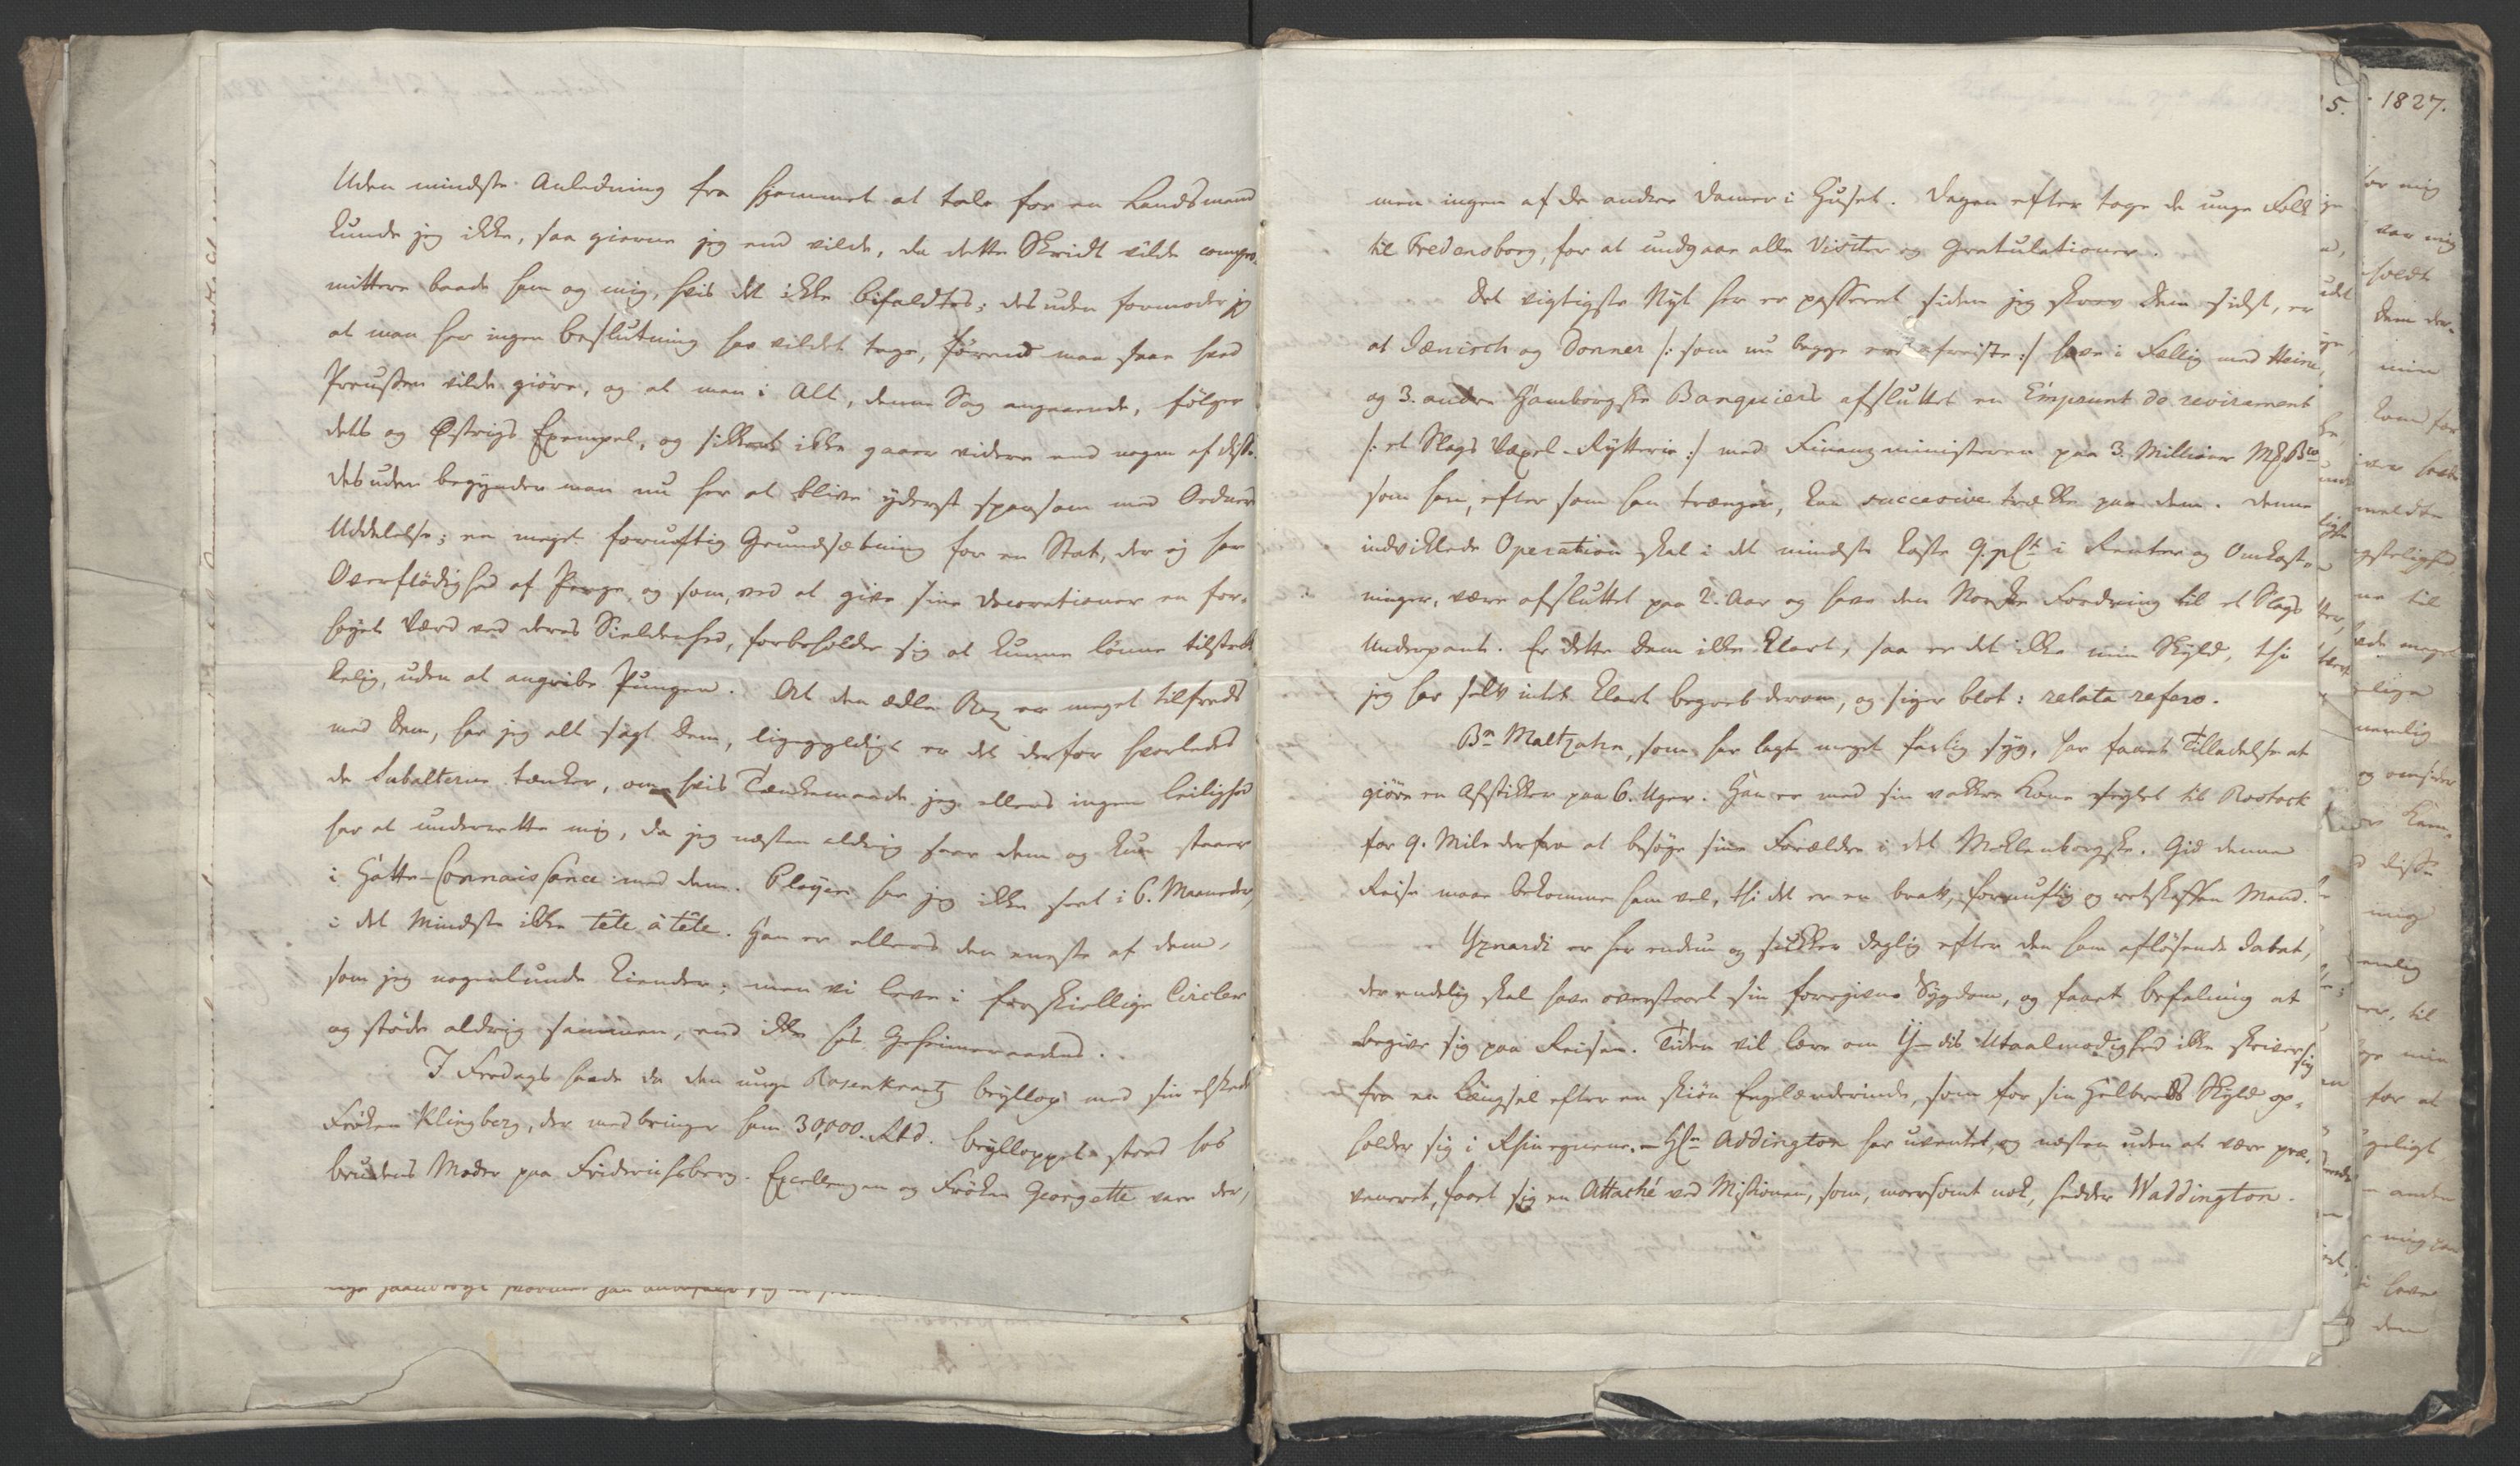 Uden mindste Anledning fra Hjemmet at tale for en Landsmand
kunde jeg ikke, saa gierne jeg end vilde, da dette Skridt vilde compro-
mittere baade ham og mig, hvis det ikke bifaldtes; desuden formoder jeg
at man her ingen Beslutning har villet tage, förend man saae hvad
Preussen vilde giöre, og at man i Alt, denne Sag angaaende, fölger
dets og Østrigs Exempel, og sikkert ikke gaaer videre end nogen af disse.
Desuden begynder man nu her at blive yderst sparsom med Ordners
Uddelelse; en meget fornuftig Grundsætning for en Stat, der ej har
Overflödighed af Penge, og som, ved at give sine Decorationer en for-
höyet Værd ved deres Sieldenhed, forbeholder sig at kunne lönne tilstræk
kelig, uden at angribe Pungen. At den ædle Rex er meget tilfreds
med Dem, har jeg alt sagt Dem, ligegyldigt er det derfor hvorledes
de subalterne tænker, om hvis Tænkemaade jeg ellers ingen Leilighed
har at underrette mig, da jeg næsten aldrig seer dem og kun staaer
i Hatte-Connaissance med dem. Ployen har jeg ikke seet i 6. Maaneder,
i det Mindste ikke tête à tête. Han er ellers den eneste af dem,
som jeg nogenlunde kiender; men vi leve i forskiellige Circler
og støde aldrig sammen, end ikke hos Geheimeraaden.
I Fredags havde da den unge Rosenkrantz Bryllop med sin elskede
Fröken Klingberg, der medbringer ham 30,000. Rbd. Brylloppet stod hos
Brudens Moder paa Friderichsberg. Excellenzen og Fröken Georgette vare der,
men ingen af de andre Damer i Huset. Dagen efter toge de unge Folk
til Fredensborg, for at undgaae alle Visiter og Gratulationer.
Det vigtigste Nyt her er passeret siden jeg skrev Dem sidst, er
at Jænisch og Donner /: som nu begge ere afreiste :/ have i Fællig med Heine,
og 3. andre Hamborgske Banquiers afsluttet en Emprunt de revirement
/: et Slags Væxel-Rytterie :/ med Finanzministeren paa 3. Millioner Mk Bco
som han, efter som han trænger, kan succesive trække paa dem. Denne
indviklede Operation skal i det mindste koste 9. pCt i Renter og Omkost-
ninger, være afsluttet paa 2. Aar og have den Norske Fordring til et Slags
Underpant. Er dette Dem ikke klart, saa er det ikke min Skyld, thi
jeg har selv intet klart Begreb derom, og siger blot: relata refero.
Bn Maltzahn, som har lagt meget farlig syg, har faaet Tilladelse at
giöre en Afstikker paa 6. Uger. Han er med sin vakkre Kone seylet til Rostock
for 9. Mile derfra at besöge sine Forældre i det Meklenborgske. Gid denne
Reise maae bekomme ham vel, thi det er en brav, fornuftig og retskaffen Mand.
Yznardi er her endnu og sukker daglig efter den ham aflösende Dabat,
der endelig skal have overstaaet sin foregivne Sygdom, og faaet Befaling at
begive sig paa Reisen. Tiden vil lære om Y-dis Utaalmodighed ikke skriver sig
fra en Længsel efter en skiön Engelænderinde, som for sin Helbreds Skyld op-
holder sig i Rhinegnene. – Hr Addington har uventet, og næsten uden at være præ-
veneret, faaet sig en Attaché ved Missionen, som, morsomt nok, hedder Waddington.
5.
1827.